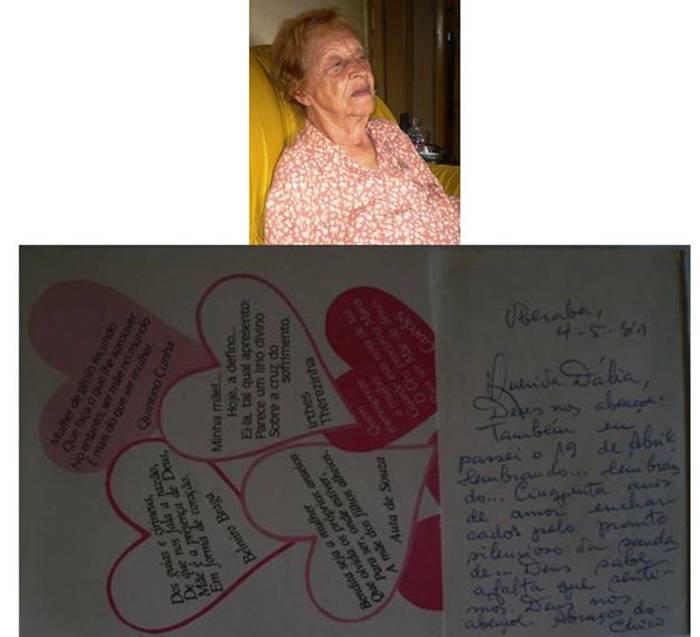 Mulher de gênio fecundo
Que faça o que lhe aprouver
No entanto, ser mãe no mundo
É mais do que ser mulher.
Quintino Cunha
Minha mãe!...
Hoje, a defino...
Ei-la, tal qual apresento:
Parece um lírio divino
Sobre a cruz do
sofrimento.
Irthes
Therezinha
Quem
Dos guias e
De que nos fala a razão,
De que nos
Mãe é a presença de Deus,
Em forma de coração.
Belmiro Braga
Bendita seja a mulher
Que olvida os próprios anseios
Para ser, onde estiver,
A mãe dos filhos alheios.
Auta de Souza
Uberaba,
4-5-81
Querida Dália,
Deus nos abençoe.
Também eu
passei o 19 de Abril
lembrando... lembran
do... Cinquenta anos
de amor enchar-
cados pelo pranto
silencioso da sauda-
de... Deus sabe
a falta que senti-
mos. Deus nos
abençoe. Abraços do
Chico